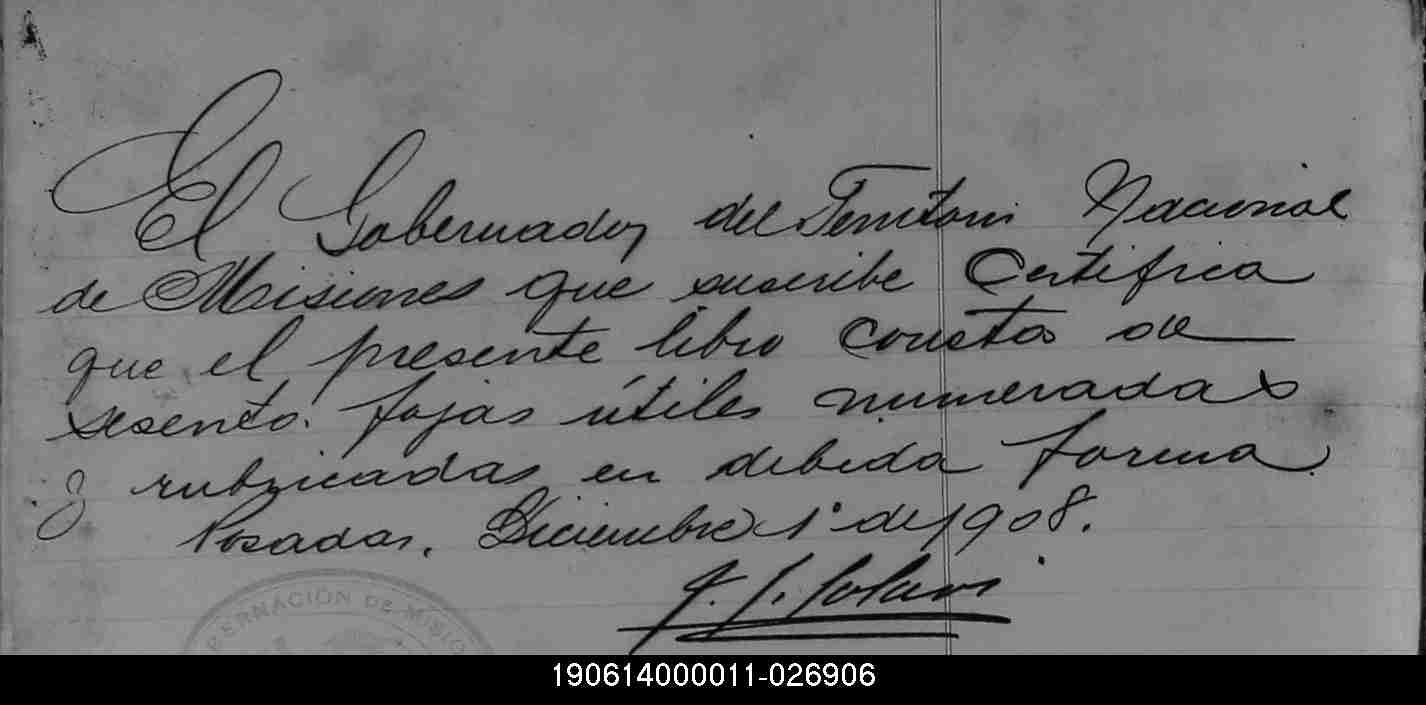 El Gobernador del Territorio Nacional
de Misiones que suscribe Certifica
que el presente libro consta de
sesenta fojas útiles numeradas
y rubricadas en debida forma.
Posadas, Diciembre 1º de 1908.
J. J. Solari
BERNACIÓN DE MISIO
190614000011-026906